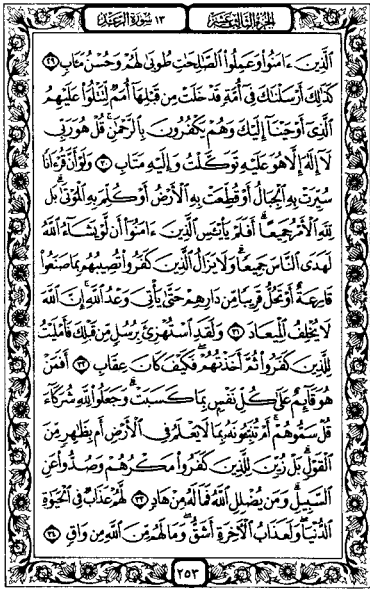 الجزء الثالث عشر
١٣ سورة الرعد
ٱلَّذِينَ ءَامَنُوا۟ وَعَمِلُوا۟ ٱلصَّٰلِحَٰتِ طُوبَىٰ لَهُمْ وَحُسْنُ مَـَٔابٍ ٢٩
كَذَٰلِكَ أَرْسَلْنَٰكَ فِىٓ أُمَّةٍ قَدْ خَلَتْ مِن قَبْلِهَآ أُمَمٌ لِّتَتْلُوَا۟ عَلَيْهِمُ
ٱلَّذِىٓ أَوْحَيْنَآ إِلَيْكَ وَهُمْ يَكْفُرُونَ بِٱلرَّحْمَٰنِ ۚ قُلْ هُوَ رَبِّى
لَآ إِلَٰهَ إِلَّا هُوَ عَلَيْهِ تَوَكَّلْتُ وَإِلَيْهِ مَتَابِ ٣٠ وَلَوْ أَنَّ قُرْءَانًا
سُيِّرَتْ بِهِ ٱلْجِبَالُ أَوْ قُطِّعَتْ بِهِ ٱلْأَرْضُ أَوْ كُلِّمَ بِهِ ٱلْمَوْتَىٰ ۗ بَل
لِّلَّهِ ٱلْأَمْرُ جَمِيعًا ۗ أَفَلَمْ يَا۟يْـَٔسِ ٱلَّذِينَ ءَامَنُوٓا۟ أَن لَّوْ يَشَآءُ ٱللَّهُ
لَهَدَى ٱلنَّاسَ جَمِيعًا ۗ وَلَا يَزَالُ ٱلَّذِينَ كَفَرُوا۟ تُصِيبُهُم بِمَا صَنَعُوا۟
قَارِعَةٌ أَوْ تَحُلُّ قَرِيبًا مِّن دَارِهِمْ حَتَّىٰ يَأْتِىَ وَعْدُ ٱللَّهِ ۚ إِنَّ ٱللَّهَ
لَا يُخْلِفُ ٱلْمِيعَادَ ٣١ وَلَقَدِ ٱسْتُهْزِئَ بِرُسُلٍ مِّن قَبْلِكَ فَأَمْلَيْتُ
لِلَّذِينَ كَفَرُوا۟ ثُمَّ أَخَذْتُهُمْ ۖ فَكَيْفَ كَانَ عِقَابِ ٣٢ أَفَمَنْ
هُوَ قَآئِمٌ عَلَىٰ كُلِّ نَفْسٍۭ بِمَا كَسَبَتْ ۗ وَجَعَلُوا۟ لِلَّهِ شُرَكَآءَ
قُلْ سَمُّوهُمْ ۚ أَمْ تُنَبِّـُٔونَهُۥ بِمَا لَا يَعْلَمُ فِى ٱلْأَرْضِ أَم بِظَٰهِرٍ مِّنَ
ٱلْقَوْلِ ۗ بَلْ زُيِّنَ لِلَّذِينَ كَفَرُوا۟ مَكْرُهُمْ وَصُدُّوا۟ عَنِ
ٱلسَّبِيلِ ۗ وَمَن يُضْلِلِ ٱللَّهُ فَمَا لَهُۥ مِنْ هَادٍ ٣٣ لَّهُمْ عَذَابٌ فِى ٱلْحَيَوٰةِ
ٱلدُّنْيَا ۖ وَلَعَذَابُ ٱلْأَخِرَةِ أَشَقُّ ۖ وَمَا لَهُم مِّنَ ٱللَّهِ مِن وَاقٍ ٣٤
٢٥٣